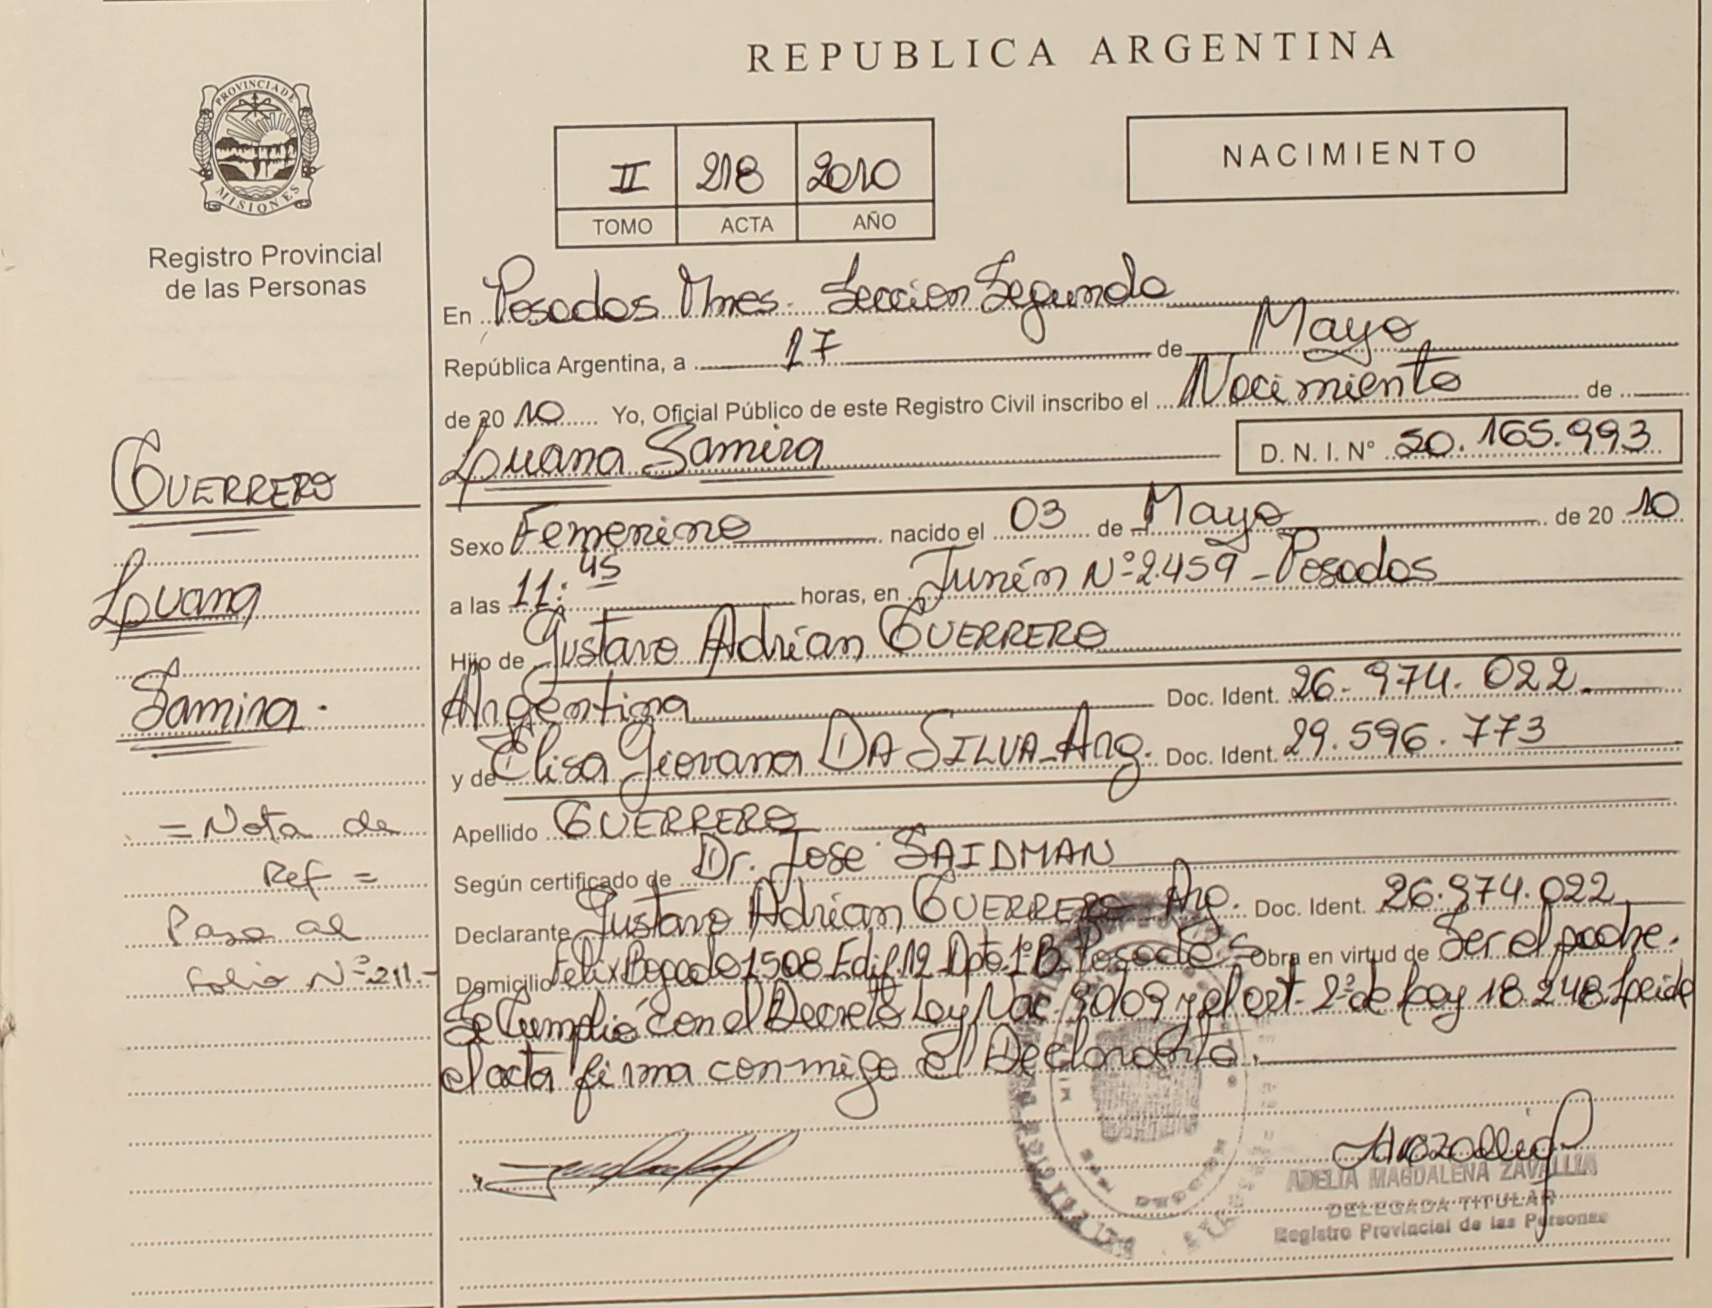 REPUBLICA ARGENTINA
PROVINCIA DE
MISIONES
Registro Provincial
de las Personas
II 218 2010
TOMO ACTA AÑO
NACIMIENTO
En Posadas Mnes. Seccion Segunda
República Argentina, a 17 de Mayo
de 2010 Yo, Oficial Público de este Registro Civil inscribo el Nacimiento de
Luana Samira D. N. I. N° 50.165.993
Sexo Femenino nacido el 03 de Mayo de 2010
a las 11:45 horas, en Junín Nº 2.459 - Posadas
Hijo de Gustavo Adrián GUERRERO
Argentina Doc. Ident. 26.974.022
y de Elisa Giovana DA SILVA - Arg. Doc. Ident. 29.596.773
Apellido GUERRERO
Según certificado de Dr. Jose SAIDMAN
Declarante Gustavo Adrian GUERRERO Arg. Doc. Ident. 26.974.022
Domicilio Felix Bogado 1508 Edif. 12 Dpto. 1º B. Posadas Obra en virtud de Ser el padre.
Se Cumplió con el Decreto Ley Nac. y el art. 2º de Ley 18.248. Leida
el acta firma conmigo el Declarante.
GUERRERO
Luana
Samira.
= Nota de
Ref =
Pasa al
Folio Nº 211.-
ADELIA MAGDALENA ZAVALLIA
DELEGADA TITULAR
Registro Provincial de las Personas